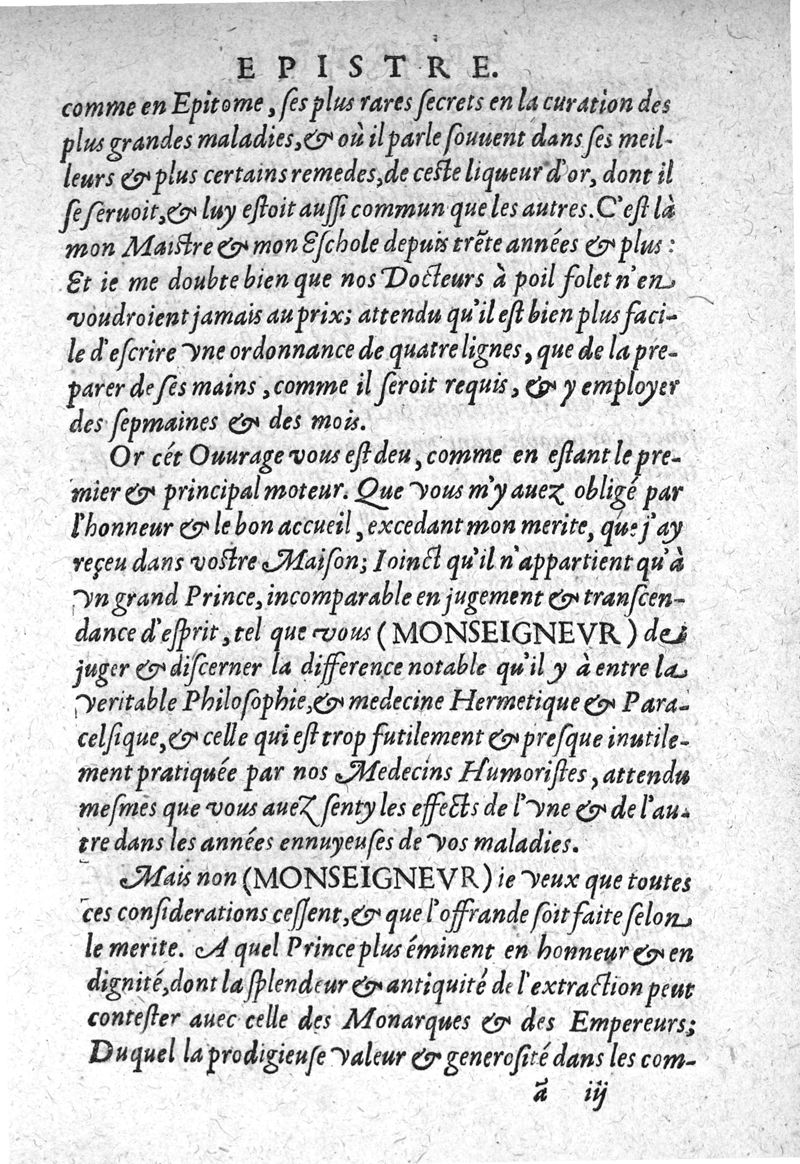 EPISTRE.
comme en Epitome, ſes plus rares ſecrets en la curation des
plus grandes maladies, & où il parle ſouuent dans ſes meil-
leurs & plus certains remedes, de ceſte liqueur d'or, dont il
ſe ſeruoit, & luy eſtoit auſſi commun que les autres. C'eſt là
mon Maiſtre & mon Eſchole depuis trẽte années & plus:
Et ie me doubte bien que nos Docteurs à poil folet n'en
voudroient jamais au prix; attendu qu'il eſt bien plus faci-
le d'eſcrire vne ordonnance de quatre lignes, que de la pre-
parer de ſes mains, comme il ſeroit requis, & y employer
des ſepmaines & des mois.
Or cét Ouurage vous eſt deu, comme en eſtant le pre-
mier & principal moteur. Que vous m'y auez obligé par
l'honneur & le bon accueil, excedant mon merite, que j'ay
reçeu dans voſtre Maiſon; Ioinct qu'il n'appartient qu'à
vn grand Prince, incomparable en jugement & tranſcen-
dance d'eſprit, tel que vous (MONSEIGNEVR) de
juger & diſcerner la difference notable qu'il y à entre la
veritable Philoſophie, & medecine Hermetique & Para-
celſique, & celle qui eſt trop futilement & preſque inutile-
ment pratiquée par nos Medecins Humoriſtes, attendu
meſmes que vous auez ſenty les effects de l'vne & de l'au-
tre dans les années ennuyeuſes de vos maladies.
Mais non (MONSEIGNEVR) ie veux que toutes
ces conſiderations ceſſent, & que l'offrande ſoit faite ſelon
le merite. A quel Prince plus éminent en honneur & en
dignité, dont la ſplendeur & antiquité de l'extraction peut
conteſter auec celle des Monarques & des Empereurs;
Duquel la prodigieuſe valeur & generoſité dans les com-
ã iij